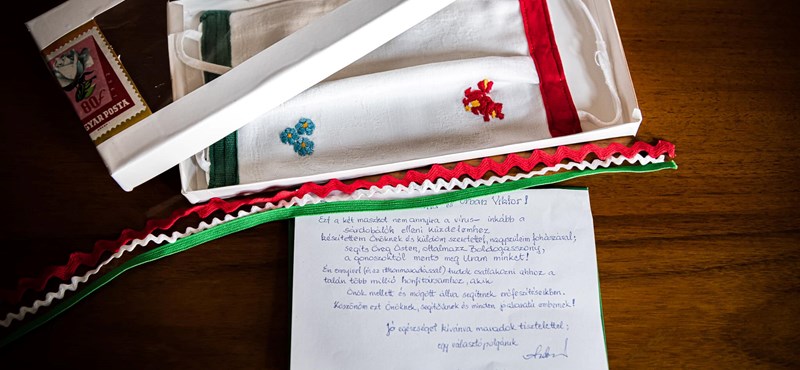 80f
GYAR POSTA
Orbán Viktor!
Ezt a két maszkot nem annyira a vírus- inkább a
sárdobálók elleni küzdelemhez
készítettem Önöknek és küldöm szeretettel, nagyszüleim fohászával;
segíts Öreg Isten, oltalmazz Boldogasszony,
a gonoszoktól ments meg Uram minket!
Én ennyivel (és imádkozással) tudok csatlakozni ahhoz a
talán több millió honfitársamhoz, akik
Önök mellett és mögött állva segítenek erőfeszítéseikben.
Köszönöm ezt Önöknek, segítőiknek és minden jóakaratú embernek!
Jó egészséget kívánva maradok tisztelettel;
egy választópolgárunk